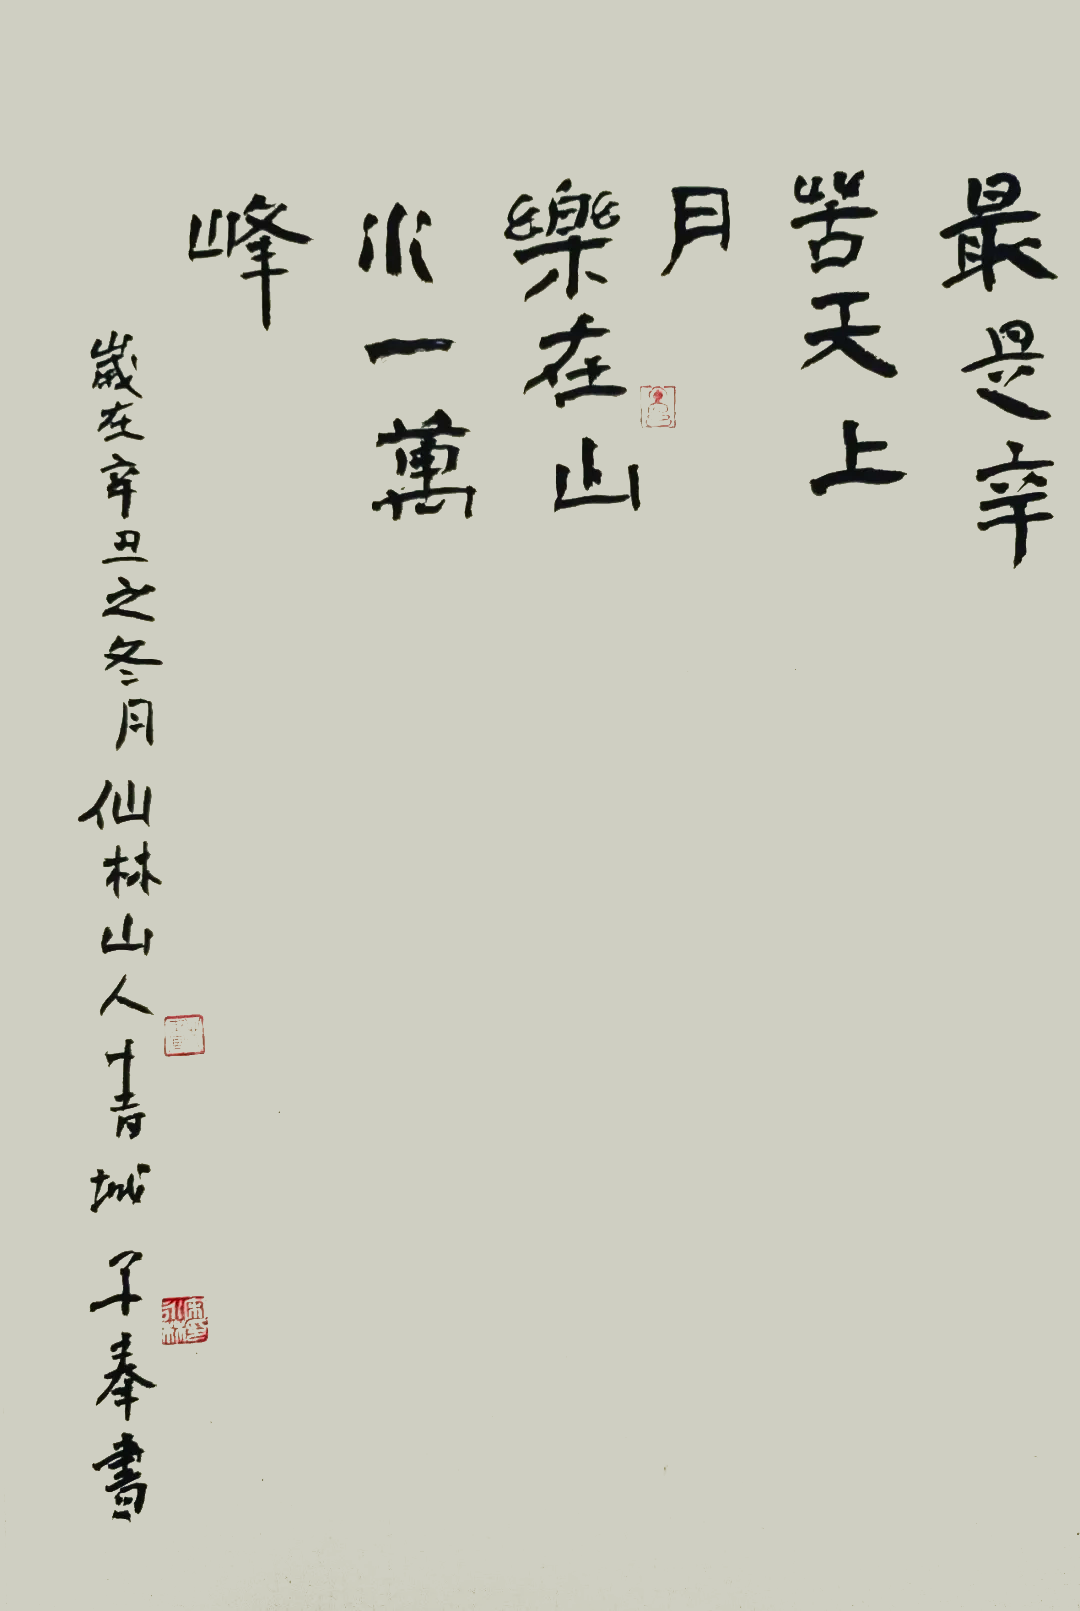 最是辛
苦天上
月
樂在山
水一萬
峰
歲在辛丑之冬月仙林山人青城子奉書